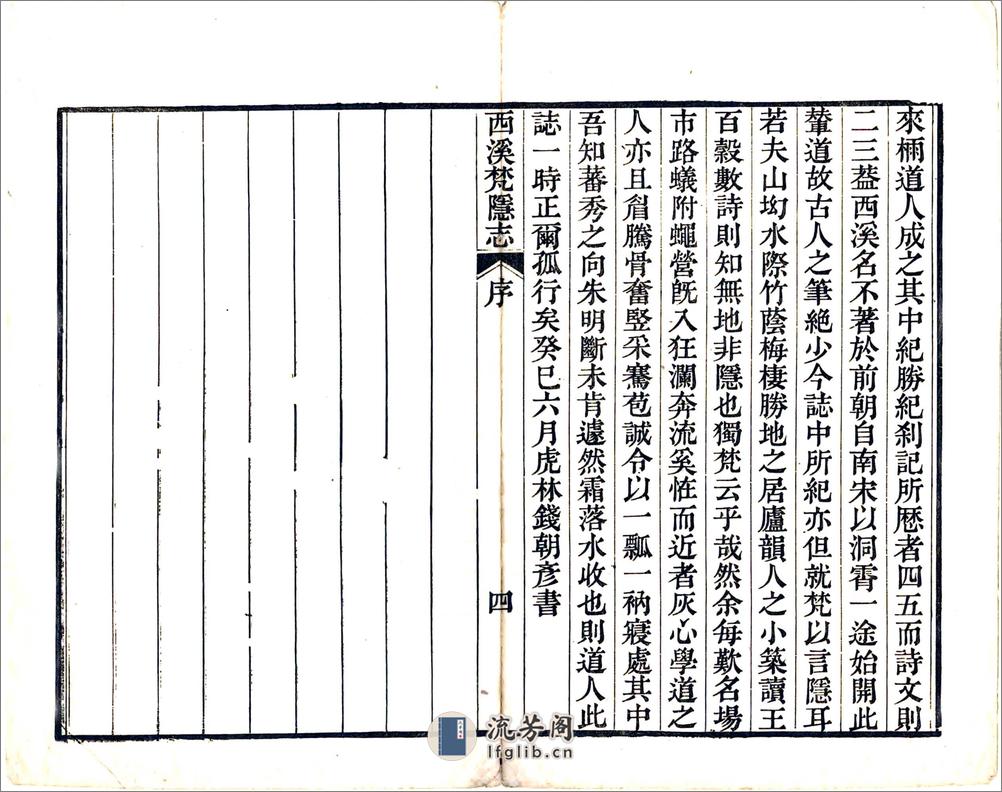 來㮌道人成之其中紀勝紀刹記所歷者四五而詩文則
二三葢西溪名不著於前朝自南宋以洞霄一途始開此
輦道故古人之筆絶少今誌中所紀亦但就梵以言隱耳
若夫山㘭水際竹蔭梅棲勝地之居廬韻人之小築讀王
百榖數詩則知無地非隱也獨梵云乎哉然余每歎名場
市路蟻附蠅營旣入狂瀾奔流奚恠而近者灰心學道之
人亦且眉騰骨奮竪采騫苞誠令以一瓢一衲寢處其中
吾知蕃秀之向朱明斷未肯遽然霜落水收也則道人此
誌一時正爾孤行矣癸巳六月虎林錢朝彥書
西溪梵隱志 序 四
流芳阁
lfglib.cn